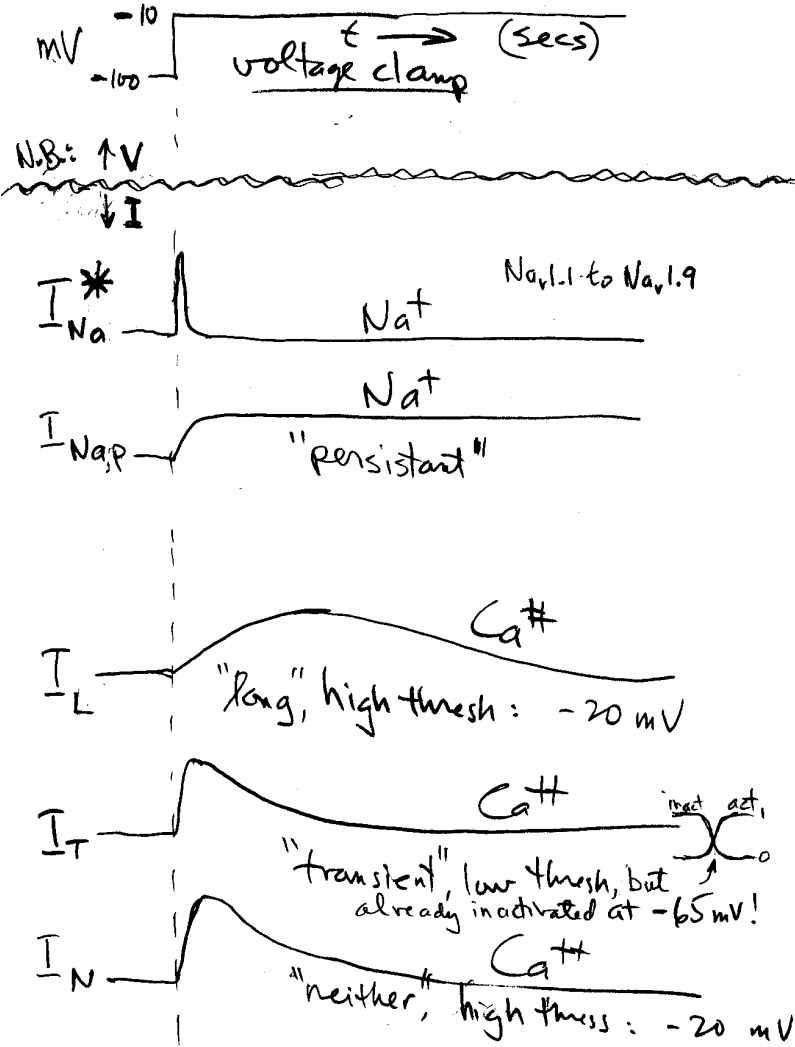 -10
mV t → (secs)
-100 voltage clamp
N.B.: ↑V
↓I
I*Na Na+ Nav1.1 to Nav1.9
I Na,P Na+
"persistant"
I L Ca++
"long", high thresh: -20 mV
I T Ca++ inact act 1
0
"transient", low thresh, but
already inactivated at -65mV!
I N Ca++
"neither," high thress: -20 mV